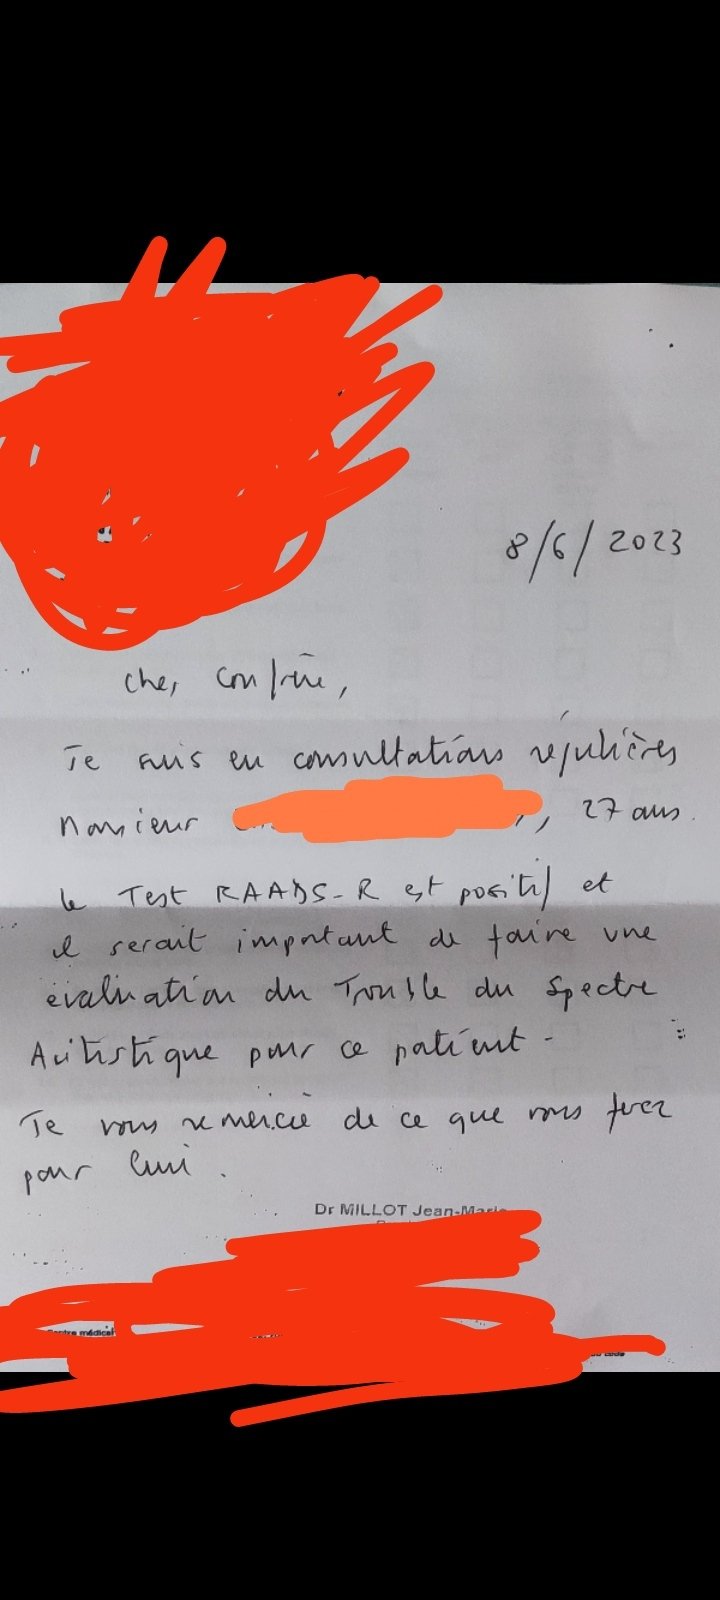 8/6/2023
Cher Confrère,
Je suis en consultations régulières
Monsieur , 27 ans.
Le Test RAADS-R est positif et
il serait important de faire une
évaluation du Trouble du Spectre
Autistique pour ce patient -
Je vous remercie de ce que vous ferez
pour lui.
Dr MILLOT Jean-Marie
Centre médical